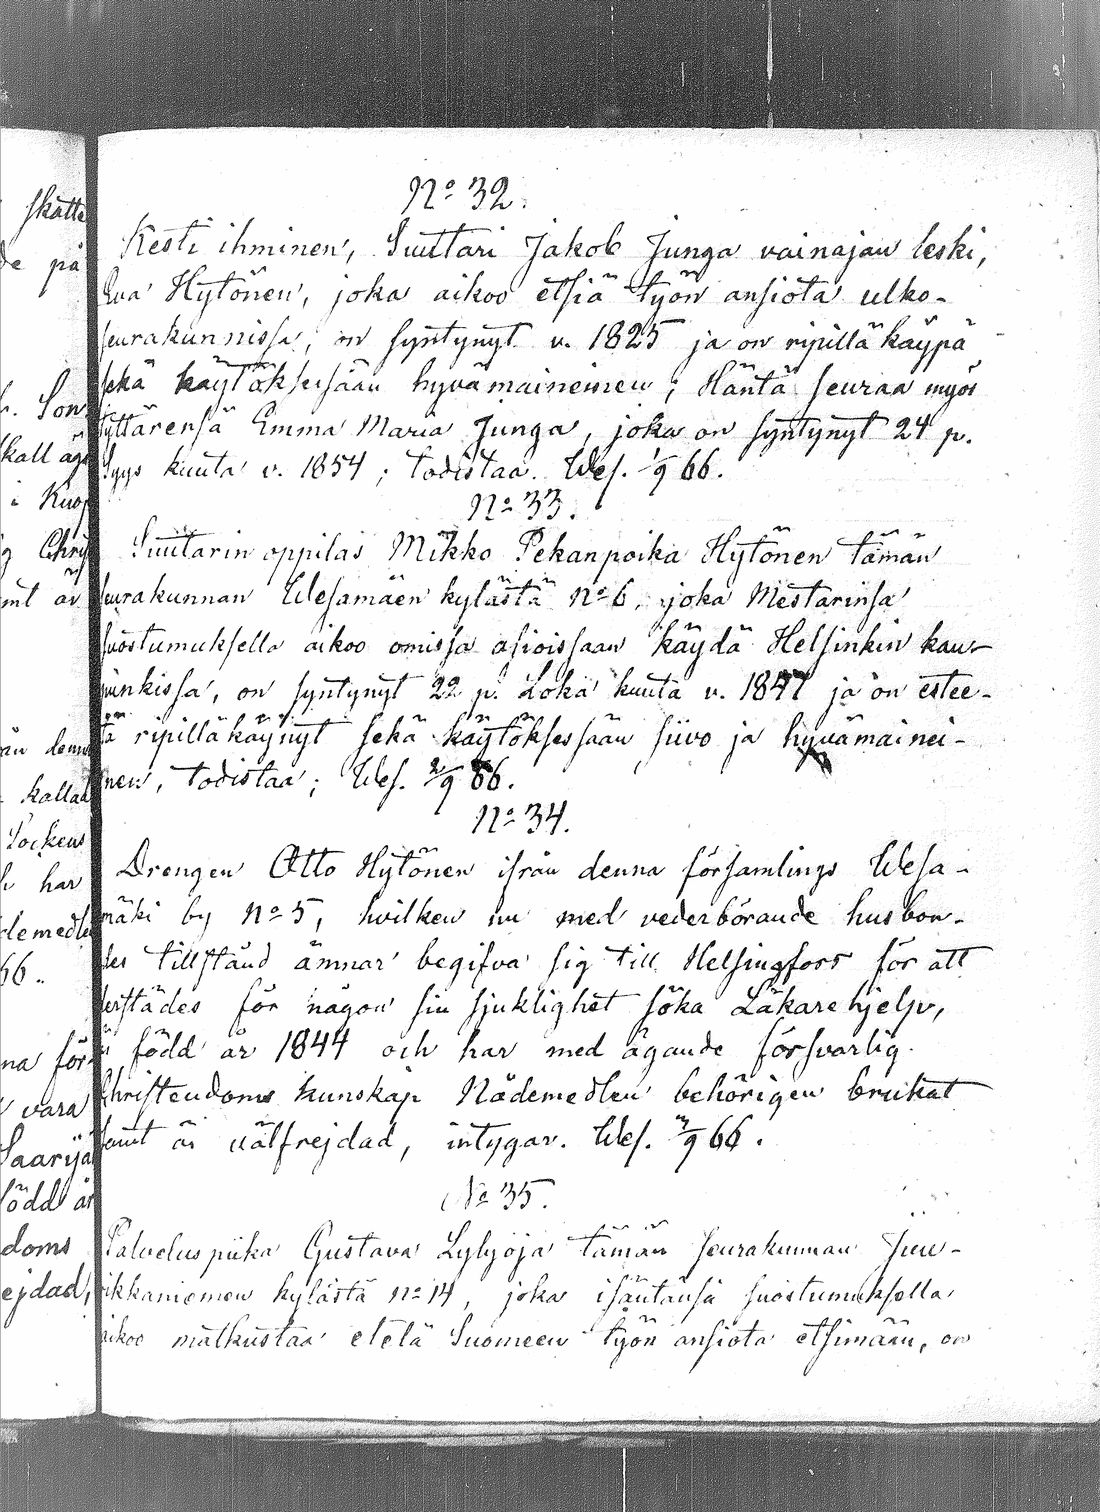 skatte
de på
h. Son
skall äga
i Kuop
og Chris
amt är
än denna
kallad
Sockens
h har
demedle
66.
na för
vara
Saarijä
född år
doms
ejdad,
No 32.
Kesti ihminen, Suutari Jakob Junga vainajan leski,
Eva Hytönen, joka aikoo etsiä työn ansiota ulko-
seurakunnissa, on syntynyt v. 1825 ja on ripillä käypä
sekä käytöksessään hyvämaineinen; Häntä seuraa myös
tyttärensä Emma Maria Junga, joka on syntynyt 24 p.
Syys kuuta v. 1854; todistaa. Wes. 1/9 66.
No 33.
Suutarin oppilas Mikko Pekanpoika Hytönen tämän
seurakunnan Wesamäen kylästä No 6, joka Mestarinsa
suostumuksella aikoo omissa asioissaan käydä Helsinkin kau-
punkissa, on syntynyt 22 p. Loka kuuta v. 1847 ja on estee-
tä ripilläkäynyt sekä käytöksessään siivo ja hyvämainei-
nen, todistaa; Wes. 2/9 66.
No 34.
Drengen Otto Hytönen ifrån denna församlings Wesa-
mäki by No 5, hvilken nu med vederbörande husbon-
des tillstånd ämnar begifva sig till Helsingfors för att
derstädes för någon sin sjuklighet söka Läkarehjelp,
är född år 1844 och har med ägande försvarlig
Christendoms kunskap Nådemedlen behörigen brukat
samt är välfrejdad, intygar. Wes. 7/9 66.
No 35.
Palvelus piika Gustava Lylyoja tämän seurakunnan
ikkaniemen kylästä No 14, joka isäntänsä suostumuksella
aikoo matkustaa etelä Suomeen työn ansiota etsimään, on